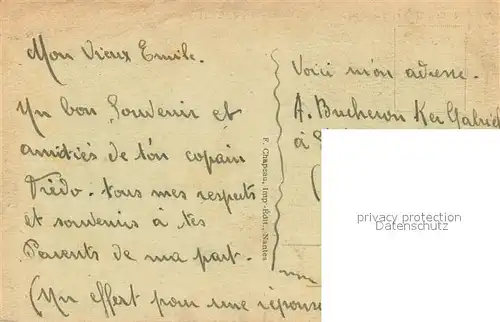 Mon Vieux Emile.
Un bon Souvenir et
amitiés de ton copain
tous mes respects
et souvenirs à tes
Parents de ma part.
(Un effort pour une réponse
F. Chapeau, Imp.-Édit., Nantes
Voici mon adresse.
A. Bucheron Ker Gabriel
à
privacy protection
Datenschutz